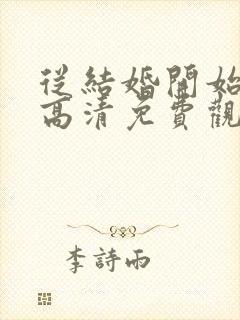 從結婚開始
高清免費觀
李詩雨